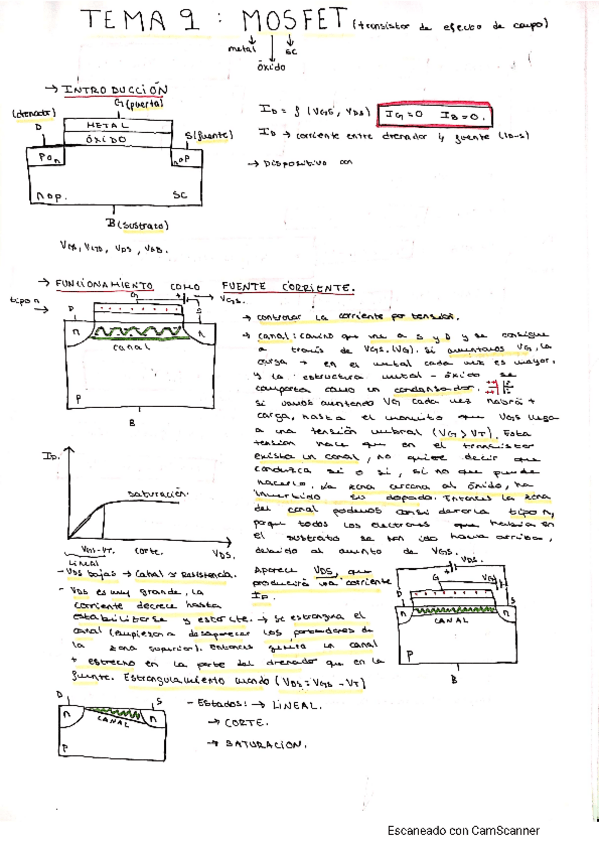 TEMA 1: MOSFET (transistor de efecto de campo)
metal óxido sc
→ INTRODUCCIÓN
G (puerta)
(drenador)
D
METAL
ÓXIDO
S (fuente)
p o n
n o p
n o p.
SC
B (sustrato)
ID = f (VGS, VDS) IG=0 IB=0.
ID → corriente entre drenador y fuente (D-S)
→ Dispositivo con
→ FUNCIONAMIENTO COMO FUENTE CORRIENTE.
tipo n
D
G
S
VGS.
n
n
canal
P
B
→ controlar la corriente por tensión.
→ canal: camino que une a S y D y se consigue
a través de VGS. (VG). Si aumentamos VG, la
carga + en el metal cada vez es mayor.
y la estructura metal - óxido se
comporta como un condensador.
si vamos aumentando VG cada vez habrá +
carga, hasta el momento que VGS llega
a una tensión umbral (VG > VT). Esta
tensión hace que en el transistor
exista un canal, no quiere decir que
conduzca si o si, si no que puede
hacerlo. La zona cercana al óxido, ha
invertido su dopado. Entonces la zona
del canal podemos considerarla tipo n,
porque todos los electrones que habia en
el sustrato se han ido hacia arriba,
debido al aumento de VGS.
ID.
saturación.
VGS-VT. corte.
VDS.
lineal
- VDS bajas → canal → resistencia.
- VDS es muy grande, la
corriente decrece hasta
estabilizarse y este cte. → Se estrangula el
canal (empiezan a desaparecer los portadores de
la zona superior). Entonces genera un canal
+ estrecho en la parte del drenador que en la
fuente. Estrangulamiento cuando (VDS = VGS - VT)
Aparece VDS, que
producirá una corriente
ID.
VDS.
G
VGS
D
S
n
n
CANAL
P
B
D
S
n
n
CANAL
P
- Estados: → LINEAL.
→ CORTE.
→ SATURACION.
Escaneado con CamScanner